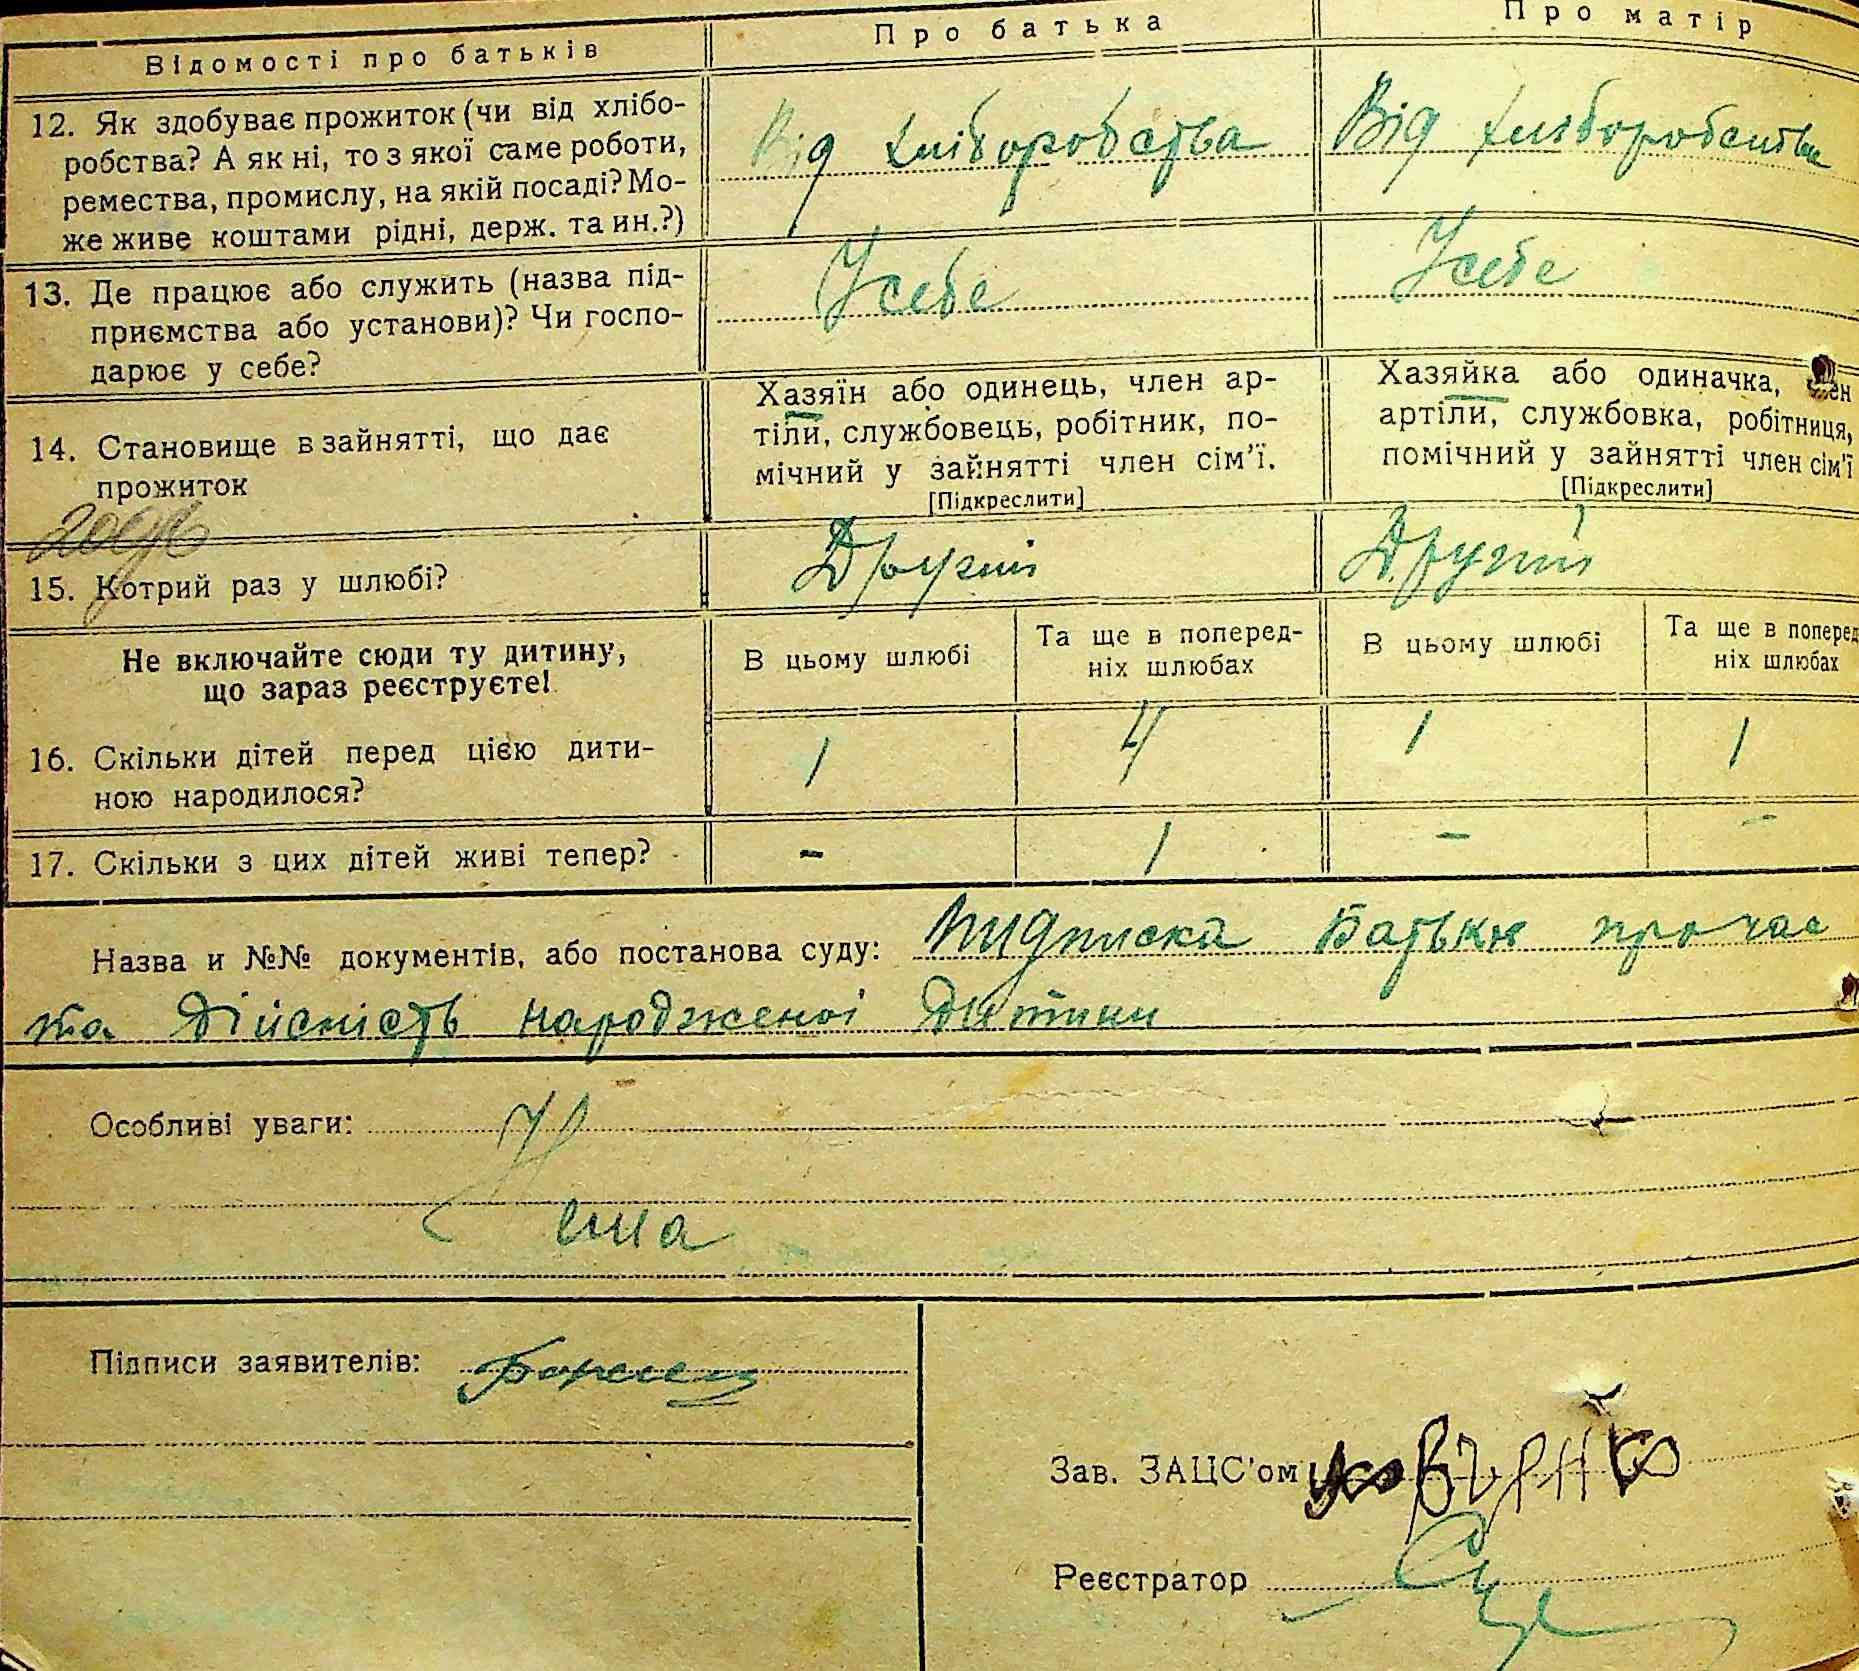 Відомості про батьків
Про батька
Про матір
12. Як здобуває прожиток (чи від хлібо-
робства? А як ні, то з якої саме роботи,
ремества, промислу, на якій посаді? Мо-
же живе коштами рідні, держ. та ин.?)
Від хліборобства
Від хліборобства
13. Де працює або служить (назва під-
приємства або установи)? Чи госпо-
дарює у себе?
У себе
У себе
14. Становище в зайнятті, що дає
прожиток
Хазяїн або одинець, член ар-
тіли, службовець, робітник, по-
мічний у зайнятті член сім'ї.
[Підкреслити]
Хазяйка або одиначка, член
артіли, службовка, робітниця,
помічний у зайнятті член сім'ї
[Підкреслити]
15. Котрий раз у шлюбі?
Другий
Другий
Не включайте сюди ту дитину,
що зараз реєструєте!
В цьому шлюбі
Та ще в поперед-
ніх шлюбах
В цьому шлюбі
Та ще в поперед
ніх шлюбах
16. Скільки дітей перед цією дити-
ною народилося?
1
4
1
1
17. Скільки з цих дітей живі тепер?
-
1
-
-
Назва и №№ документів, або постанова суду: Підписка батьки про час
та дійсність народженої дитини
Особливі уваги:
Нема
Підписи заявителів:
Зав. ЗАЦС'ом
Реєстратор